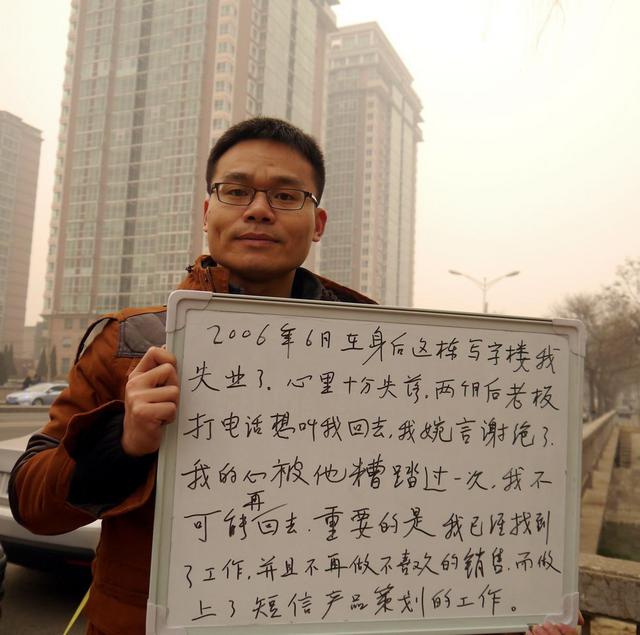 2006年6月在身后这栋写字楼我
失业了。心里十分失落,两个月后老板
打电话想叫我回去,我婉言谢绝了.
我的心被他糟踏过一次,我不
可能再回去.重要的是我已经找到
了工作,并且不再做不喜欢的销售,而做
上了短信产品策划的工作。